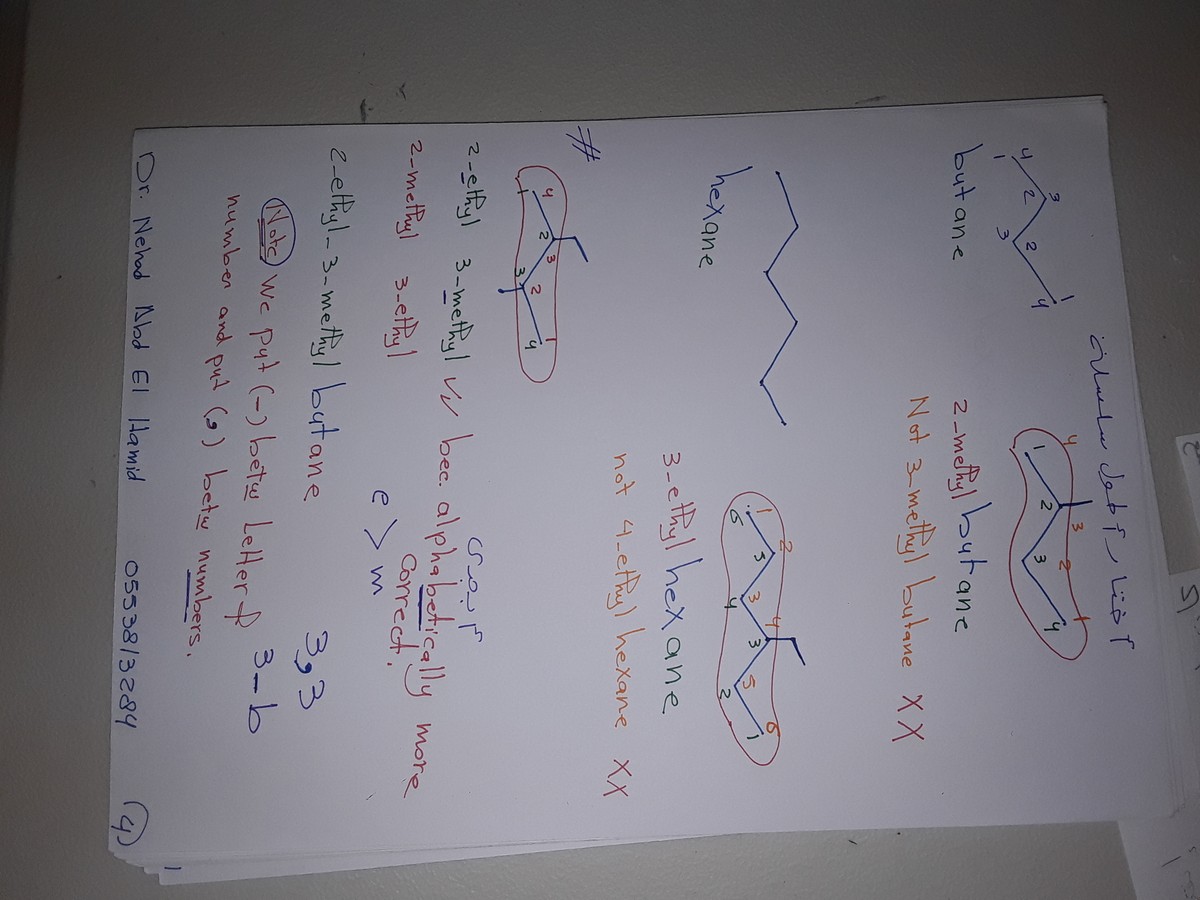 4 3 2 1
1 2 3 4
butane
4 3 2 1
1 2 3 4
2-methyl butane
Not 3-methyl butane XX
hexane
1 2 3 4 5 6
6 5 4 3 2 1
3-ethyl hexane
not 4-ethyl hexane XX
#
4 3 2 1
1 2 3 4
2-ethyl 3-methyl
bec. alphabetically more
correct.
2-methyl 3-ethyl
e > m
2-ethyl-3-methyl butane
3,3
Note We put (-) betw letter &
3-b
number and put (,) betw numbers.
Dr. Nehad Abd El Hamid 05538/3284 (4)